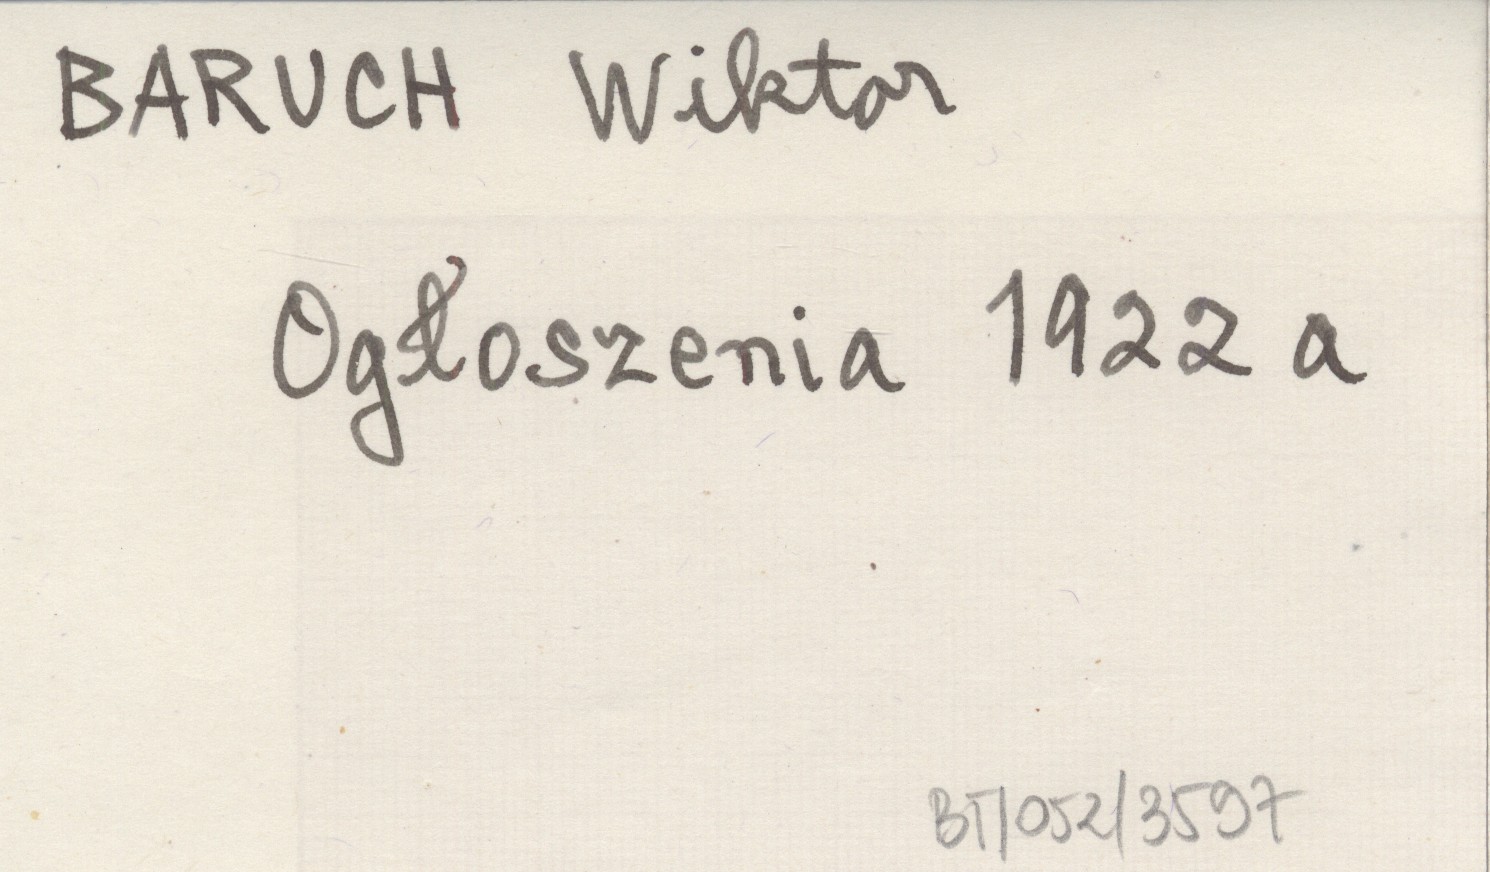 BARUCH Wiktor
Ogłoszenia 1922 a
BT/052/3597